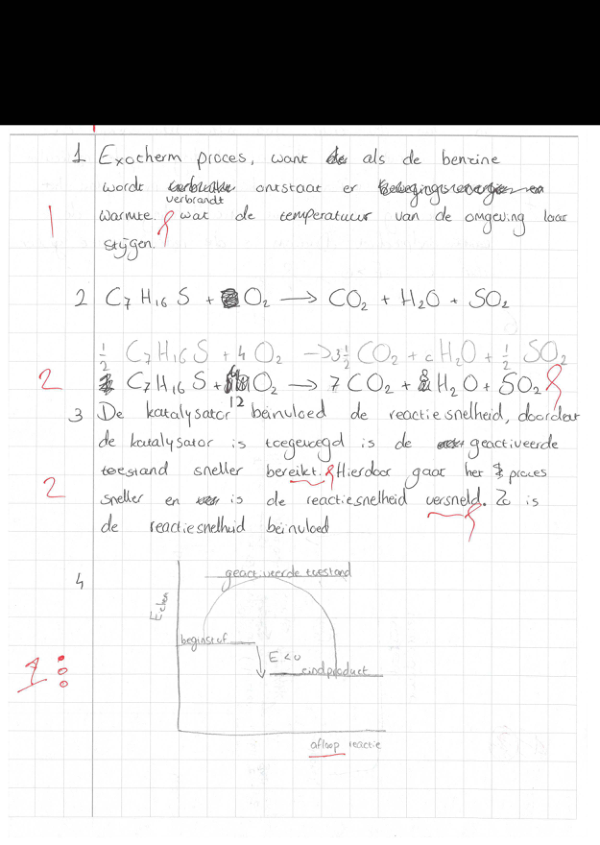 1 Exotherm proces, want als de benzine
wordt verbrandt ontstaat er
warmte wat de temperatuur van de omgeving laat
stijgen.
1
2 C7 H16 S + O2 → CO2 + H2O + SO2
1/2 C7 H16 S + 4 O2 → 3 1/2 CO2 + c H2O + 1/2 SO2
2 C7 H16 S + 12 O2 → 7 CO2 + 8 H2O + SO2
3 De katalysator beinvloed de reactiesnelheid, doordat
de katalysator is toegevoegd is de geactiveerde
toestand sneller bereikt. Hierdoor gaat het proces
2 sneller en is de reactiesnelheid versneld. Zo is
de reactiesnelheid beinvloed
4 geactiveerde toestand
Echem
beginstof
E < 0
eindproduct
1
afloop reactie